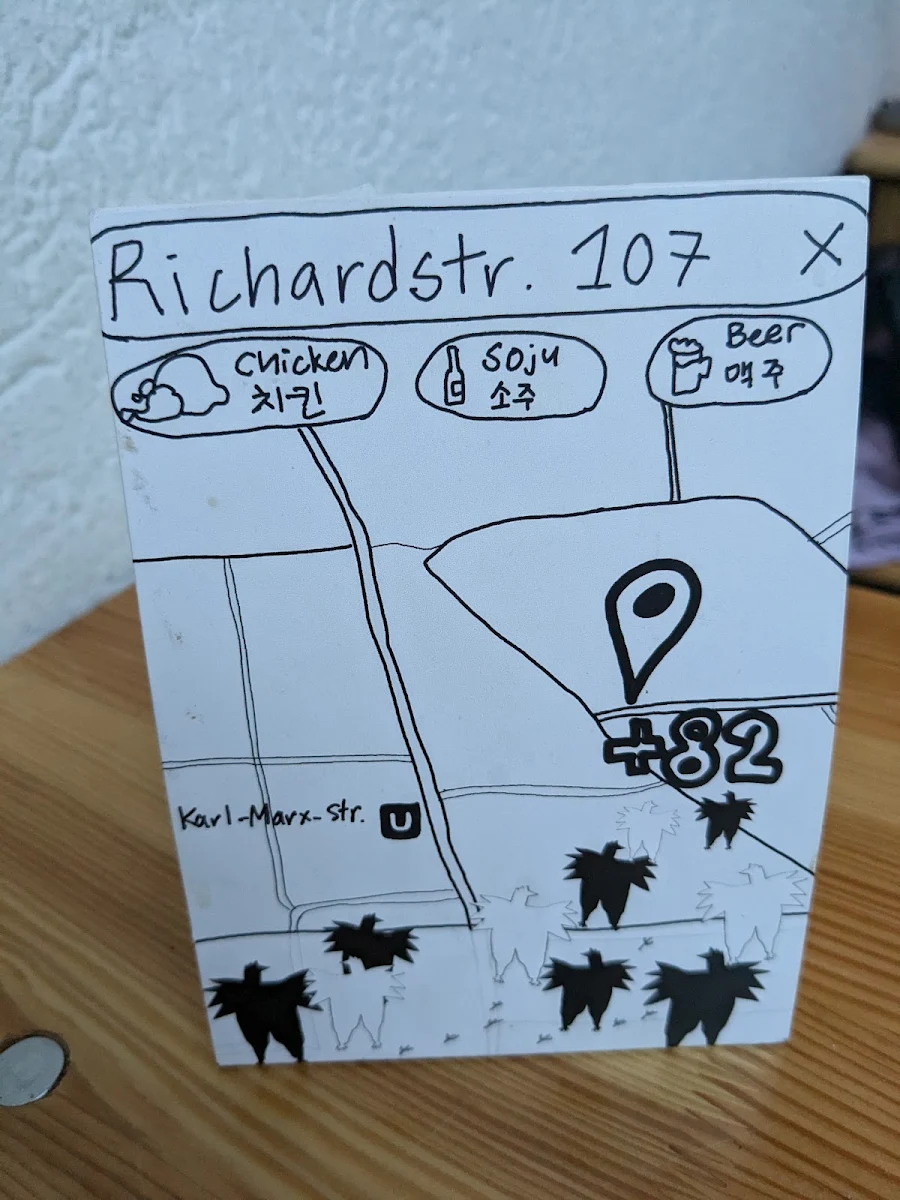 Richardstr. 107 X
Chicken
치킨
Soju
소주
Beer
맥주
+82
Karl-Marx-str. U